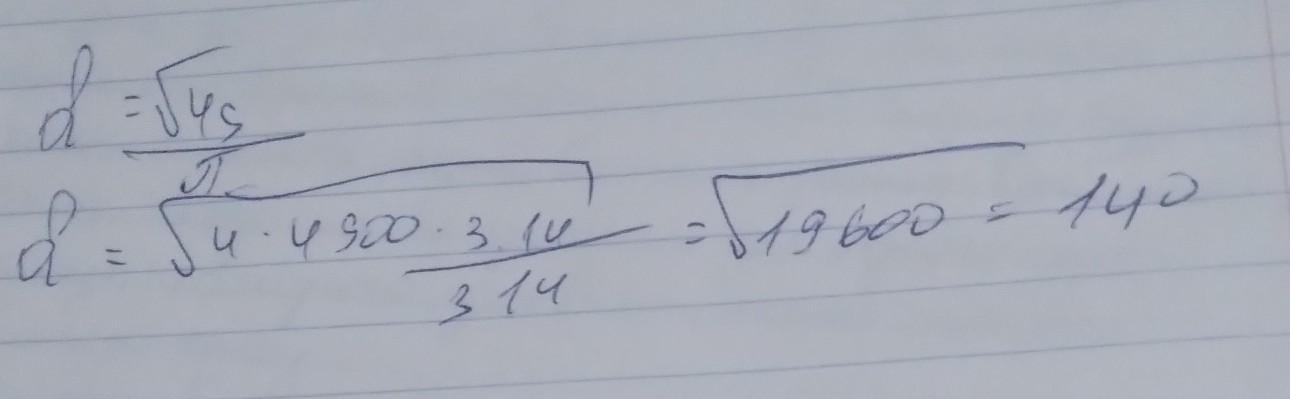 d = √4S / π
d = √4 · 4900 · 3.14 / 3 14 = √19600 = 140